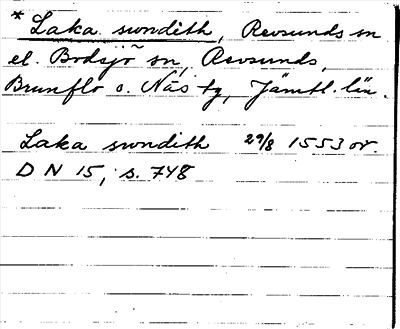 * Laka swndith, Revsunds sn
el. Bodsjö sn, Revsunds,
Brunflo o. Näs tg, Jämtl. län.
Laka swndith 29/8 1553 or
D N 15, s. 748